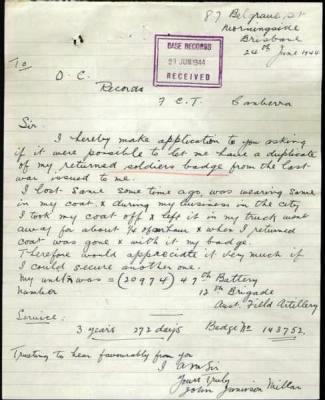 87 Belgrave St
Morningside
Brisbane
24th June 1944
BASE RECORDS
JUN 1944
RECEIVED
To
O.C.
Records
F.C.T. Canberra
Sir
I hereby make application to you asking
if it were possible to let me have a duplicate
of my returned soldiers badge from the last
war issued to me.
I lost same some time ago, was wearing same
in my coat, & during my business in the city
I took my coat off & left it in my truck went
away for about ¼ of an hour & when I returned
coat was gone & with it my badge.
Therefore would appreciate it very much if
I could secure another one.
My unit & was = (20974) 47th Battery
number 12th Brigade
Aust. Field Artillery
Service:
3 years 272 days Badge No 143752.
Trusting to hear favourably from you
I am Sir
Yours Truly
John Jamieson Millar